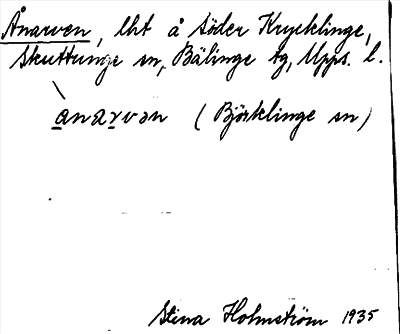 Ånarven, lht å Söder Krycklinge,
Skuttunge sn, Bälinge tg, Upps. l.
ànarvən (Björklinge sn)
Stina Holmström 1935